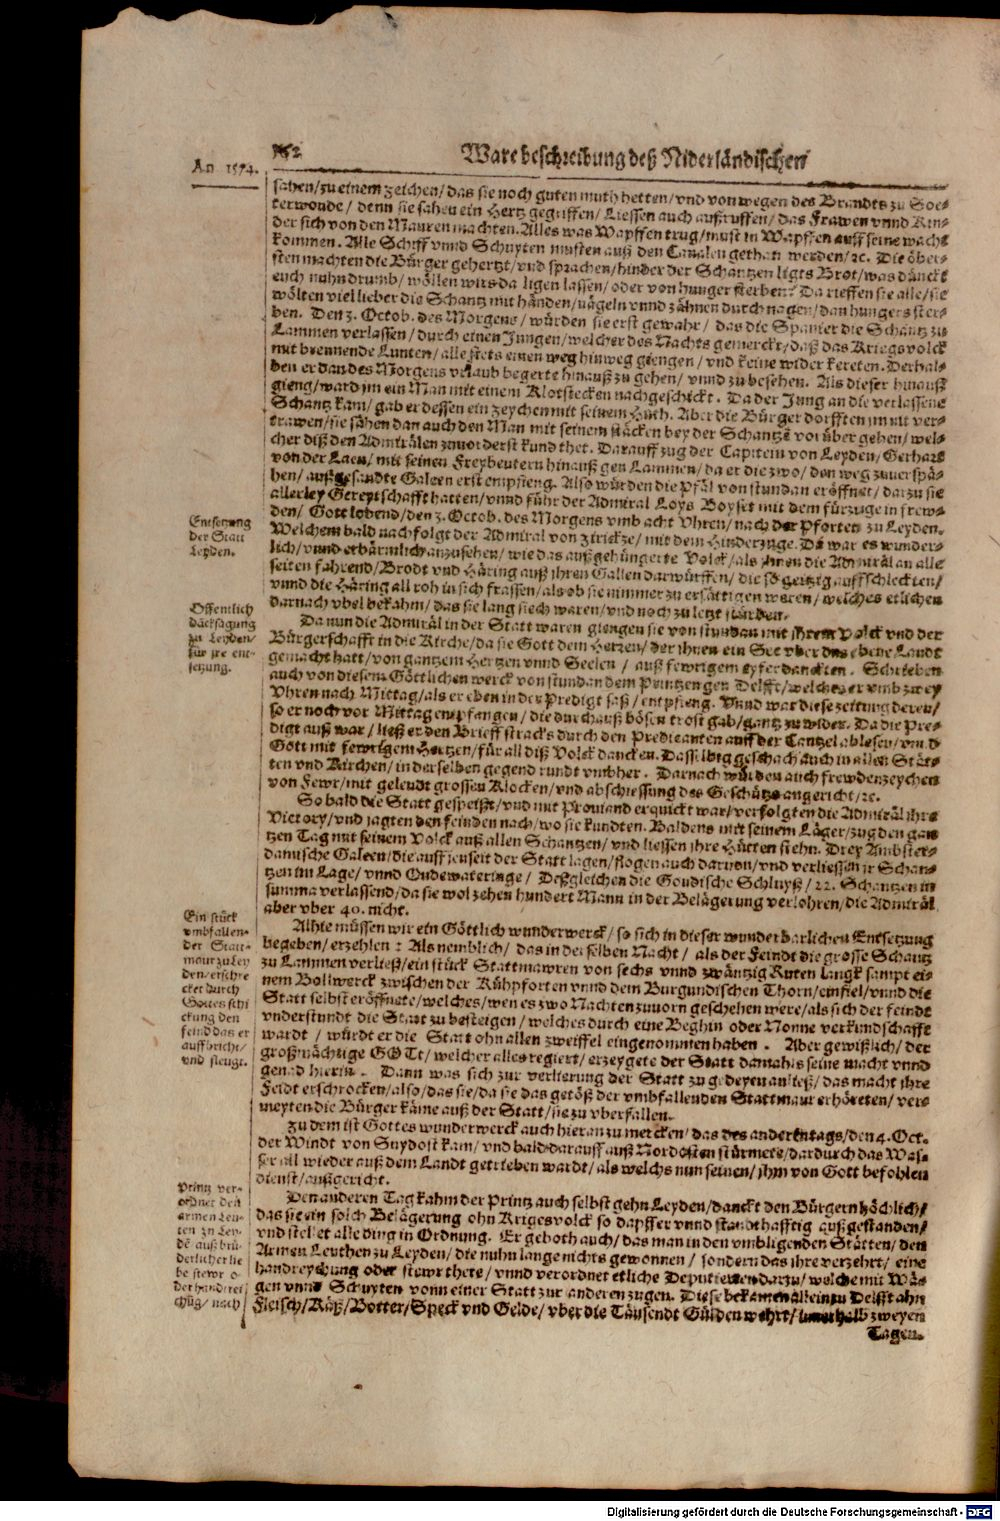 Ware beschreibung deß Niderländischen
An 1574.
sahen/zu einem zeichen/das sie noch guten muth hetten/vnd von wegen des Brandts zu Soe-
terwoude/ denn sie sahen ein Hertz gegriffen/ Liessen auch außruffen/ das Frawen vnnd Kin-
der sich von den Mauren machten. Alles was Wapffen trug/must in Wapffen auff seine wacht
kommen. Alle Schiff vnnd Schuyten musten auß den Canalen gethan werden/ꝛc. Die öber-
sten machten die Bürger gehertzt/vnd sprachen/hinder der Schantzen ligts Brot/was dünckt
euch nuhn drumb/ wöllen wirs da ligen lassen/ oder von hunger sterben? Da rieffen sie alle/sie
wölten viel lieber die Schantz mit händen/nägeln vnnd zähnen durch nagen/dan hungers ster-
ben. Den 3. Octob. des Morgens/ würden sie erst gewahr/ das die Spanier die Schantz zu
Lammen verlassen/ durch einen Jungen/welcher des Nachts gemerckt/ daß das Kriegsvolck
mit brennende Lunten/ alle stets einen weg hinweg giengen/ vnd keine wider kereten. Derhal-
ben er dan des Morgens vrlaub begerte hinauß zu gehen/ vnnd zu besehen. Als dieser hinauß
gieng/ward im ein Man mit einem Klotstecken nachgeschickt. Da der Jung an die verlassene
Schantz kam/ gab er dessen ein zeychen mit seinem Huth. Aber die Bürger dorfften im nit ver-
trawen/sie sahen dan auch den Man mit seinem stäcken bey der Schantze vorüber gehen/ wel-
cher diß den Admirälen zuvorderst kund thet. Darauff zug der Capitein von Leyden/ Gerhard
von der Laen/ mit seinen Freybeutern hinauß gen Lammen/ da er die zwo/ den weg zuverspä-
hen/ außgesandte Galeen erst empfieng. Also würden die Pfäl von stundan eröffnet/ darzu sie
allerley Gereytschafft hatten/ vnnd führ der Admiral Loys Boyset mit dem fürzuge in frew-
den/ Gott lobend/ den 3. Octob. des Morgens vmb acht Vhren/ nach der Pforten zu Leyden.
Entsetzung
der Statt
Leyden.
Welchem bald nachfolgt der Admiral von Zirickze/ mit dem Hinderzuge. Da war es wunder-
lich/ vnnd erbärmlich anzusehen/ wie das außgehüngerte Volck/als ihnen die Admiräl an alle
seiten fahrend/Brodt vnd Häring auß ihren Gallen darwürffen/ die so geitzig auffschleckten/
vnnd die Häring all roh in sich frassen/als ob sie nimmer zu ersättigen weren/ welches etlichen
darnach vbel bekahm/das sie lang siech waren/vnd noch zu letzt stürben.
Offentlich
däcksagung
zu Leyden/
für ire ent-
setzung.
Da nun die Admiräl in der Statt waren giengen sie von stundan mit ihrem Volck vnd der
Bürgerschafft in die Kirche/da sie Gott dem Herzen/ der ihnen ein See vber das ebene Landt
gemacht hatt/ von gantzem Hertzen vnnd Seelen/ auß fewrigem eyfer danckten. Schrieben
auch von diesem Göttlichen werck von stundan dem Printzen gen Delfft/welcher er vmb zwey
Vhren nach Mittag/als er eben in der Predigt saß/ entpfieng. Vnnd war diese zeitung deren/
so er noch vor Mittag enpfangen/ die durchauß bösen trost gab/gantz zu wider. Da die Pre-
digt auß war/ ließ er den Brieff stracks durch den Predicanten auff der Cantzel ablesen/vnnd
Gott mit fewrigem Hertzen/für all diß Volck dancken. Dasselbig geschach auch in allen Stät-
ten vnd Kirchen/ in derselben gegend rundt vmbher. Darnach würden auch frewdenzeychen
von Fewr/mit geleudt grossen Klocken/vnd abschiessung des Geschützs angericht/ꝛc.
So bald die Statt gespeißt/ vnd mit Proviand erquickt war/verfolgten die Admiräl ihre
Victory/vnd jagten den feinden nach/ wo sie kundten. Baldeus mit seinem Läger/ zug den gan
tzen Tag mit seinem Volck auß allen Schantzen/ vnd liessen ihre Hütten stehn. Drey Ambster-
damsche Galeen/die auff jenseit der Statt lagen/flogen auch darvon/ vnd verliessen jr Schan-
tzen im Lage/ vnnd Oudewateringe/ Deßgleichen die Goudische Schluyß/ 22. Schantzen in
summa verlassend/da sie wol zehen hundert Mann in der Belägerung verlohren/die Admiräl
aber vber 40. nicht.
Ein stück
vmbfallen-
der Statt-
maur zu Ley
den/ erschre
cket durch
Gottes schi
ckung den
feind das er
auffbricht/
vnd fleugt.
Alhie müssen wir ein Göttlich wunderwerck/ so sich in dieser wunderbarlichen Entsetzung
begeben/ erzehlen: Als nemblich/ das in derselben Nacht/ als der Feindt die grosse Schantz
zu Lammen verließ/ein stück Stattmawren von sechs vnnd zwäntzig Ruten langk sampt ei-
nem Bollwerck zwischen der Kühpforten vnnd dem Burgundischen Thorn/einfiel/vnnd die
Statt selbst eröffnete/welches/wen es zwo Nachten zuvorn geschehen were/als sich der feindt
vnderstundt die Statt zu besteigen/ welches durch eine Beghin oder Nonne verkundschafft
wardt/ würdt er die Statt ohn allen zweiffel eingenommen haben. Aber gewißlich/ der
großmächtige GOTt/ welcher alles regiert/ erzeygete der Statt damahls seine macht vnnd
genad hierin. Dann was sich zur verlierung der Statt zu gedeyen anließ/ das macht ihre
Feidt erschrocken/also/das sie/da sie das getöß der vmbfallenden Stattmaur erhöreten/ ver-
meyten die Bürger käme auß der Statt/sie zu vberfallen.
Zu dem ist Gottes wunderwerck auch hieran zu mercken/ das des anderntags/den 4. Oct.
der Windt von Suydost kam/ vnd bald darauff auß Nordosten stürmete/dardurch das Was-
ser all wieder auß dem Landt getrieben wardt/ als welchs nun seinen/ ihm von Gott befohlen
dienst/außgericht.
Printz ver-
ordnet den
armen Leu-
ten zu Ley-
dē auß brü-
derlicher lie
be stewr o-
der handrei
chūg/ nach
Den anderen Tag kahm der Printz auch selbst gehn Leyden/danckt den Bürgern höchlich/
das sie ein solch Belägerung ohn Krigesvolck so dapffer vnnd standthafftig außgestanden/
vnd stellet alle ding in Ordnung. Er geboth auch/ das man in den vmbligenden Stätten/ den
Armen Leuthen zu Leyden/ die nuhn lange nichts gewonnen/ sondern das ihre verzehrt/ eine
handreychung oder stewr thete/ vnnd verordnet etliche Deputierten darzu/ welche mit Wä-
gen vnnd Schuyten vonn einer Statt zur anderen zugen. Diese bekamen allein zu Delfft ahn
Fleisch/Käß/Botter/Speck vnd Gelde/ vber die Tausendt Gülden wehrt/ innerhalb zweyen
Tagen.
Digitalisierung gefördert durch die Deutsche Forschungsgemeinschaft - DFG